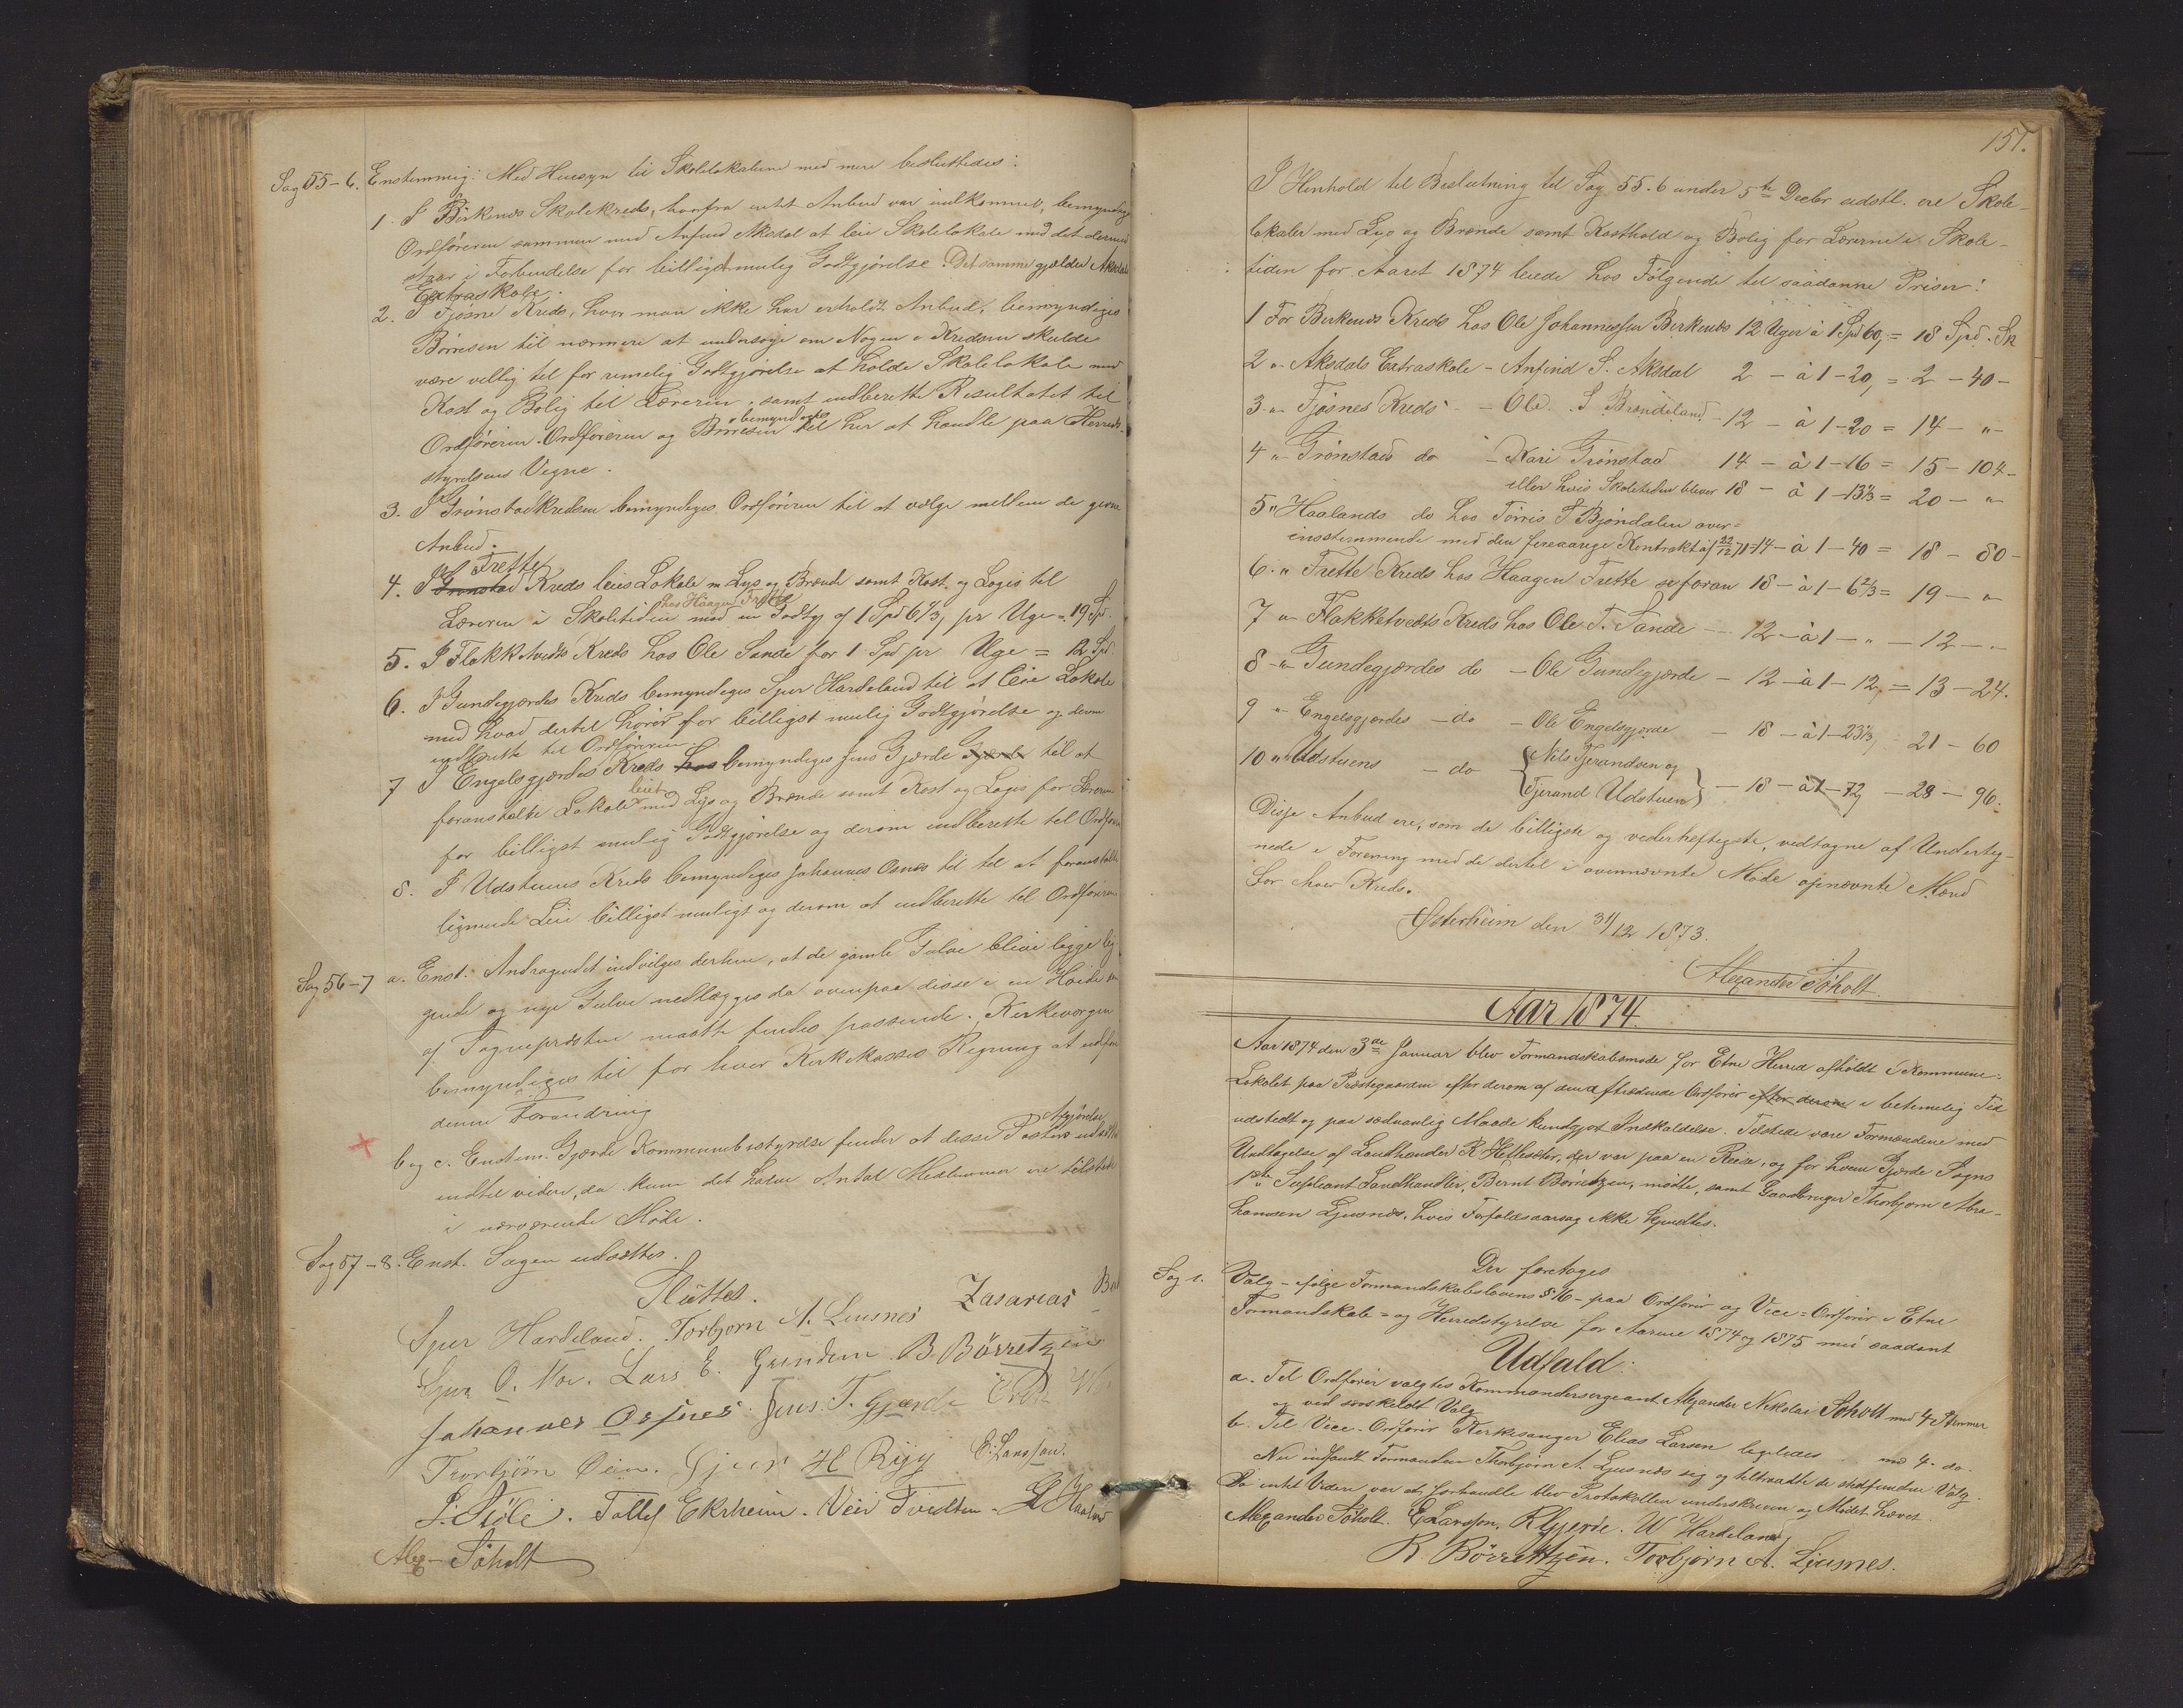 Sag 55-6. Enstemmig: Med Hensyn til Skolelokalerne med mere besluttedes:
1. I Birkenes Skolekreds, hvorfra intet Anbud var indkommet, bemyndiges
Ordføreren sammen med Anfind Aksdal at leie Skolelokale med det dermed
staar i Forbindelse for billigst mulig Godtgjørelse. Det samme gjælder Aksdals
Extraskole.
2. I Fjøsne Kreds, hvor man ikke har erholdt Anbud, bemyndiges
Børresen til nærmere at undersøge om Nogen i Kredsen skulde
være villig til for rimelig Godtgjørelse at holde Skolelokale med
Kost og Bolig til Læreren, samt indberette Resultatet til
Ordføreren. Ordføreren og Børresen bemyndiges til her at handle paa Herreds-
styrelsens Vegne.
3. I Grønstadkredsen bemyndiges Ordføreren til at vælge mellem de givne
Anbud.
4. I Grønstad Frette Kreds leies Lokale m Lys og Brænde samt Kost og Logis til
Læreren i Skoletiden hos Haagen Frette mod en Godtg. af 1 Spd 6 2/3 pr Uge = 19 Spd.
5. I Flokketvedts Kreds hos Ole Sande for 1 Spd pr Uge = 12 Spd.
6. I Gundegjerdes Kreds bemyndiges Sjur Hardeland til at leie Lokale
med hvad dertil hører for billigst mulig Godtgjørelse og derom
indberette til Ordføreren.
7 I Engelsgjerdes Kreds hos bemyndiges Jens Gjærde Gjærde til at
foranstalte Lokale leiet med Lys og Brænde samt Kost og Logis for Læreren
for billigst mulig Godtgjørelse og derom indberette til Ordføreren
8. I Udstuens Kreds bemyndiges Johannes Osnes til til at foranstalte
lignende Leie billigst muligt og derom at indberette til Ordføreren
Sag 56-7 a. Enst. Andragendet indvilges derhen, at de gamle Gulve blive ligge lig-
gende og nye Gulve nedlægges da ovenpaa disse i en Høide som
af Sognepræsten maatte findes passende. Kirkeværgen
bemyndiges til for hver Kirkekasses Regning at udføre
denne Forandring
b og c. Enstem. Gjærde Kommunebestyrelse finder at disse Posters Afgjørelse udsættes
indtil videre, da kun det halve Antal Medlemmer ere tilstede
i nærværende Møde.
Sag 57-8. Enst. Sagen udsættes.
Sluttet.
Sjur Hardeland. Torbjørn A. Liusnes Zasarias
O. Moe. Lars E. Grindem B. Børretzen
Johannes Osnes. Jens T. Gjærde
Torbjørn Øien. Gjert H Rygg E. Larsson.
S. Støle. Tollef Ekrheim. Veir Tvedten. L Haaland
Alex Søholt
151.
I Henhold til Beslutning til Sag 55.6 under 5te Decbr sidstl. ere Skole-
lokaler med Lys og Brænde samt Kosthold og Bolig for Lærerne i Skole-
tiden for Aaret 1874 leiede hos Følgende til saadanne Priser:
1 For Berkenes Kreds hos Ole Johannessen Berkenes 12 Uger à 1 Spd 60, = 18 Spd. Sk
2 " Aksdals Extraskole - Anfind S. Aksdal 2 - à 1-20, = 2 - 40 -
3 " Fjøsnes Kreds - Ole S Brendeland - 12 - à 1-20 = 14 - " -
4 " Grønstad do - Kari Grønstad 14 - à 1-16 = 15 - 104 -
eller hvis Skoletiden bliver 18 - à 1-13 1/3 = 20 - "
5 " Haalands do hos Tørris T Bjøndalen over-
ensstemmende med den fireaarige Kontrakt af 22/12 71 - 14 - à 1 - 40 = 18 - 80 -
6. " Frette Kreds hos Haagen Frette se foran 18 - à 1-6 2/3 = 19 - "
7 " Flokketvedts Kreds hos Ole T. Sande - 12 - à 1 - " - 12 - "
8 " Gundegjerdes do - Ole Gundegjerde - 12 - à 1-12, = 13 - 24.
9 " Engelsgjerdes - do - Ole Engelsgjerde - 18 - à 1-23 1/3, 21 - 60
10 " Udstuens - do - { Nils Tjerandsen og
Tjerand Udstuen } - 18 - à 1-72, - 28 - 96.
Disse Anbud ere, som de billigste og vederheftigste, vedtagne af Underteg-
nede i Forening med de dertil i ovennævnte Møde opnævnte Mænd
for hver Kreds.
Østerheim den 31/12 1873.
Alexander Søholt
Aar 1874.
Aar 1874 den 3die Januar blev Formandskabsmøde for Etne Herred afholdt i Kommune-
Lokalet paa Præstegaarden efter derom af den aftrædende Ordfører efter derom i betimelig Tid
udstedt og paa sædvanlig Maade kundgjort Indkaldelse. Tilstede vare Formændene med
Undtagelse af Landhandler R Hetlesæter, der var paa en Reise, og for hvem Gjærde Sogns
1ste Supleant Landhandler, Bernt Børretzen, mødte, samt Gaardbruger Thorbjørn Abra-
hamsen Ljusnes, hvis Forfaldsaarsag ikke kjendtes.
Der foretoges
Sag 1. Valg - ifølge Formandskabslovens § 16 - paa Ordfører og Vice-Ordfører i Etne
Formandskab- og Herredstyrelse for Aarene 1874 og 1875 med saadant
Udfald:
a. Til Ordfører valgtes Kommandersergeant Alexander Nikolai Søholt med 4 Stemmer
og ved særskildt Valg
b. Til Vice-Ordfører Kirkesanger Elias Larsen ligeledes med 4. do.
Nu indfandt Formanden Thorbjørn A. Ljusnes sig og tiltraadte de stedfundne Valg.
Da intet Videre var at forhandle blev Protokollen underskreven og Mødet hævet.
Alexander Søholt. E Larsson. R Gjerde. W Hardeland
B. Børretzen. Torbjørn A. Ljusnes.